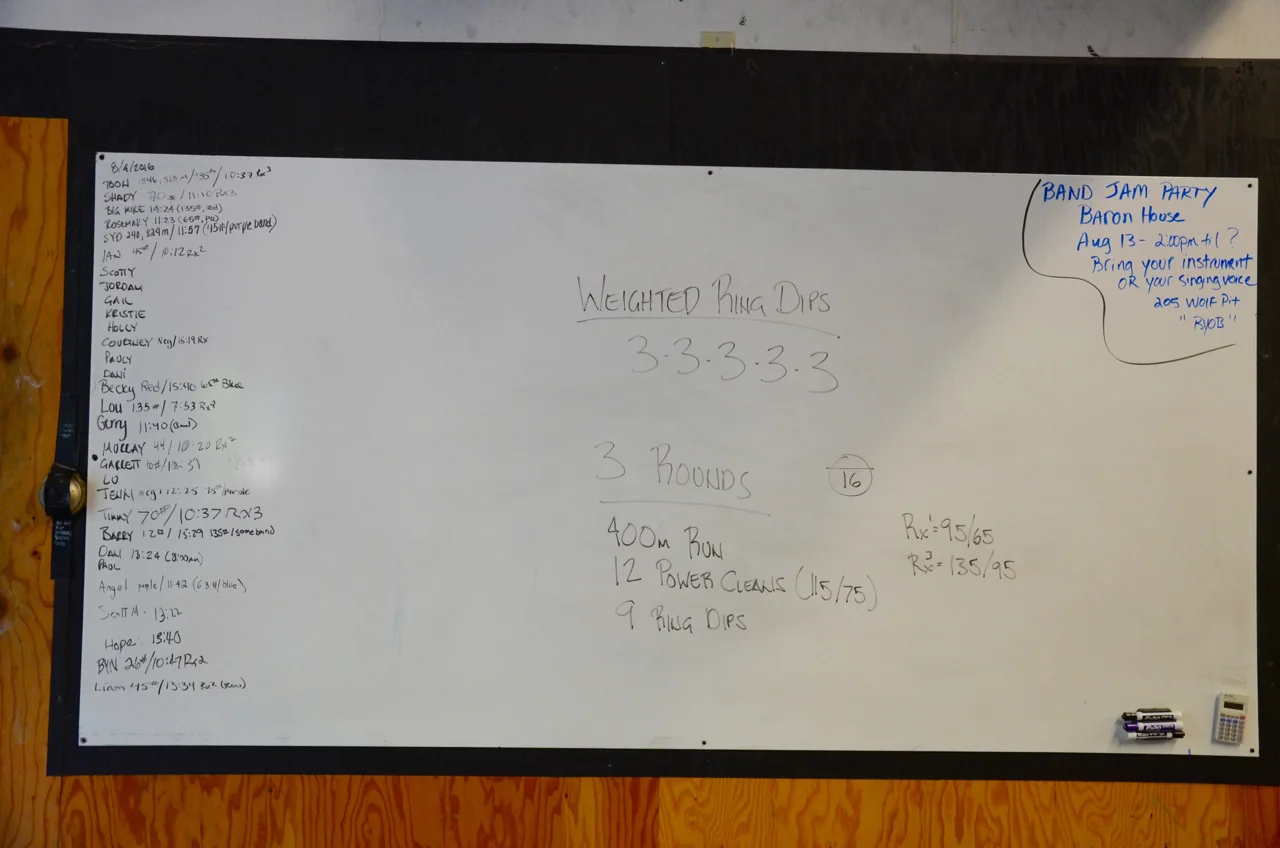 8/4/2016
TOOH /135#/10:37 Rx3
SHADY 70# / 11:10 Rx3
BIG MIKE 14:24 (135#, Red)
ROSEMARY 11:23 (65#, PU)
SYD 240, 829m / 11:57 (45#/purple band)
IAN 45# / 10:12 Rx2
SCOTTY
JORDAN
GAIL
KRISTIE
HOLLY
COURTNEY Neg/15:19 Rx
PAULY
DANI
Becky Red/15:40 65# Blue
Lou 135#/ 7:53 Rx2
Gerry 11:40 (Band)
MURRAY 44/ 10:20 Rx2
GARRETT 10#/13:31
LU
JENN neg 12:25 75#/purple
TIMMY 70#/10:37 Rx3
BARRY 12#/ 15:29 135#/some band
DAN 13:24 (8:00AM)
PAUL
Angel purple/11:42 (63#/blue)
Scott M. 13:22
Hope: 13:40
BYN 26#/10:47 Rx2
Liam 45#/13:34 Rx2 (Band)
WEIGHTED RING DIPS
3·3·3·3·3
3 ROUNDS
16
400m RUN
12 POWER CLEANS (115/75)
9 RING DIPS
Rx1=95/65
Rx3=135/95
BAND JAM PARTY
Baron House
Aug 13 - 2:00pm til ?
Bring your instrument
OR your singing voice
205 WOLF Pit
"BYOB"